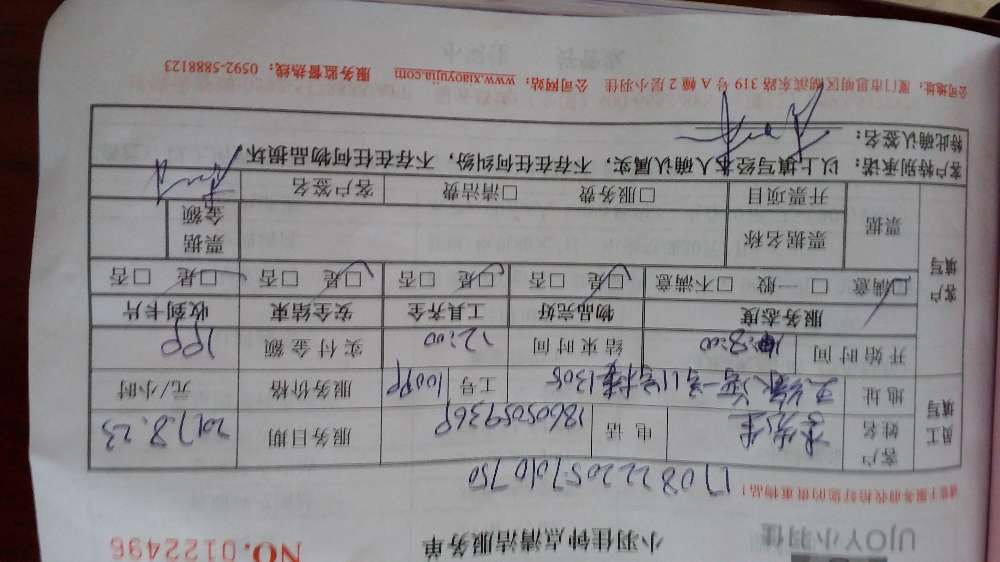 UJOY小羽佳
小羽佳钟点清洁服务单
NO.0122496
请您于服务前收拾好您的贵重物品!
1708222057010750
员工填写
客户姓名 李先生 电话 18605059369 服务日期 2017.8.23
地址 11号楼1305 工号 服务价格 元/小时
开始时间 8:00 结束时间 12:00 实付金额
客户填写
服务态度 物品完好 工具齐全 安全结束 收到卡片
□满意 □一般 □不满意 □是 □否 □是 □否 □是 □否 □是 □否
票据 票据名称 票据金额
开票项目 □服务费 □清洁费 客户签名
客户特别承诺:以上填写经本人确认属实,不存在任何纠纷,不存在任何物品损坏
特此确认签名:
公司地址:厦门市思明区湖滨东路 319 号 A 幢 2 层小羽佳 公司网站:www.xiaoyujia.com 服务监督热线:0592-5888123